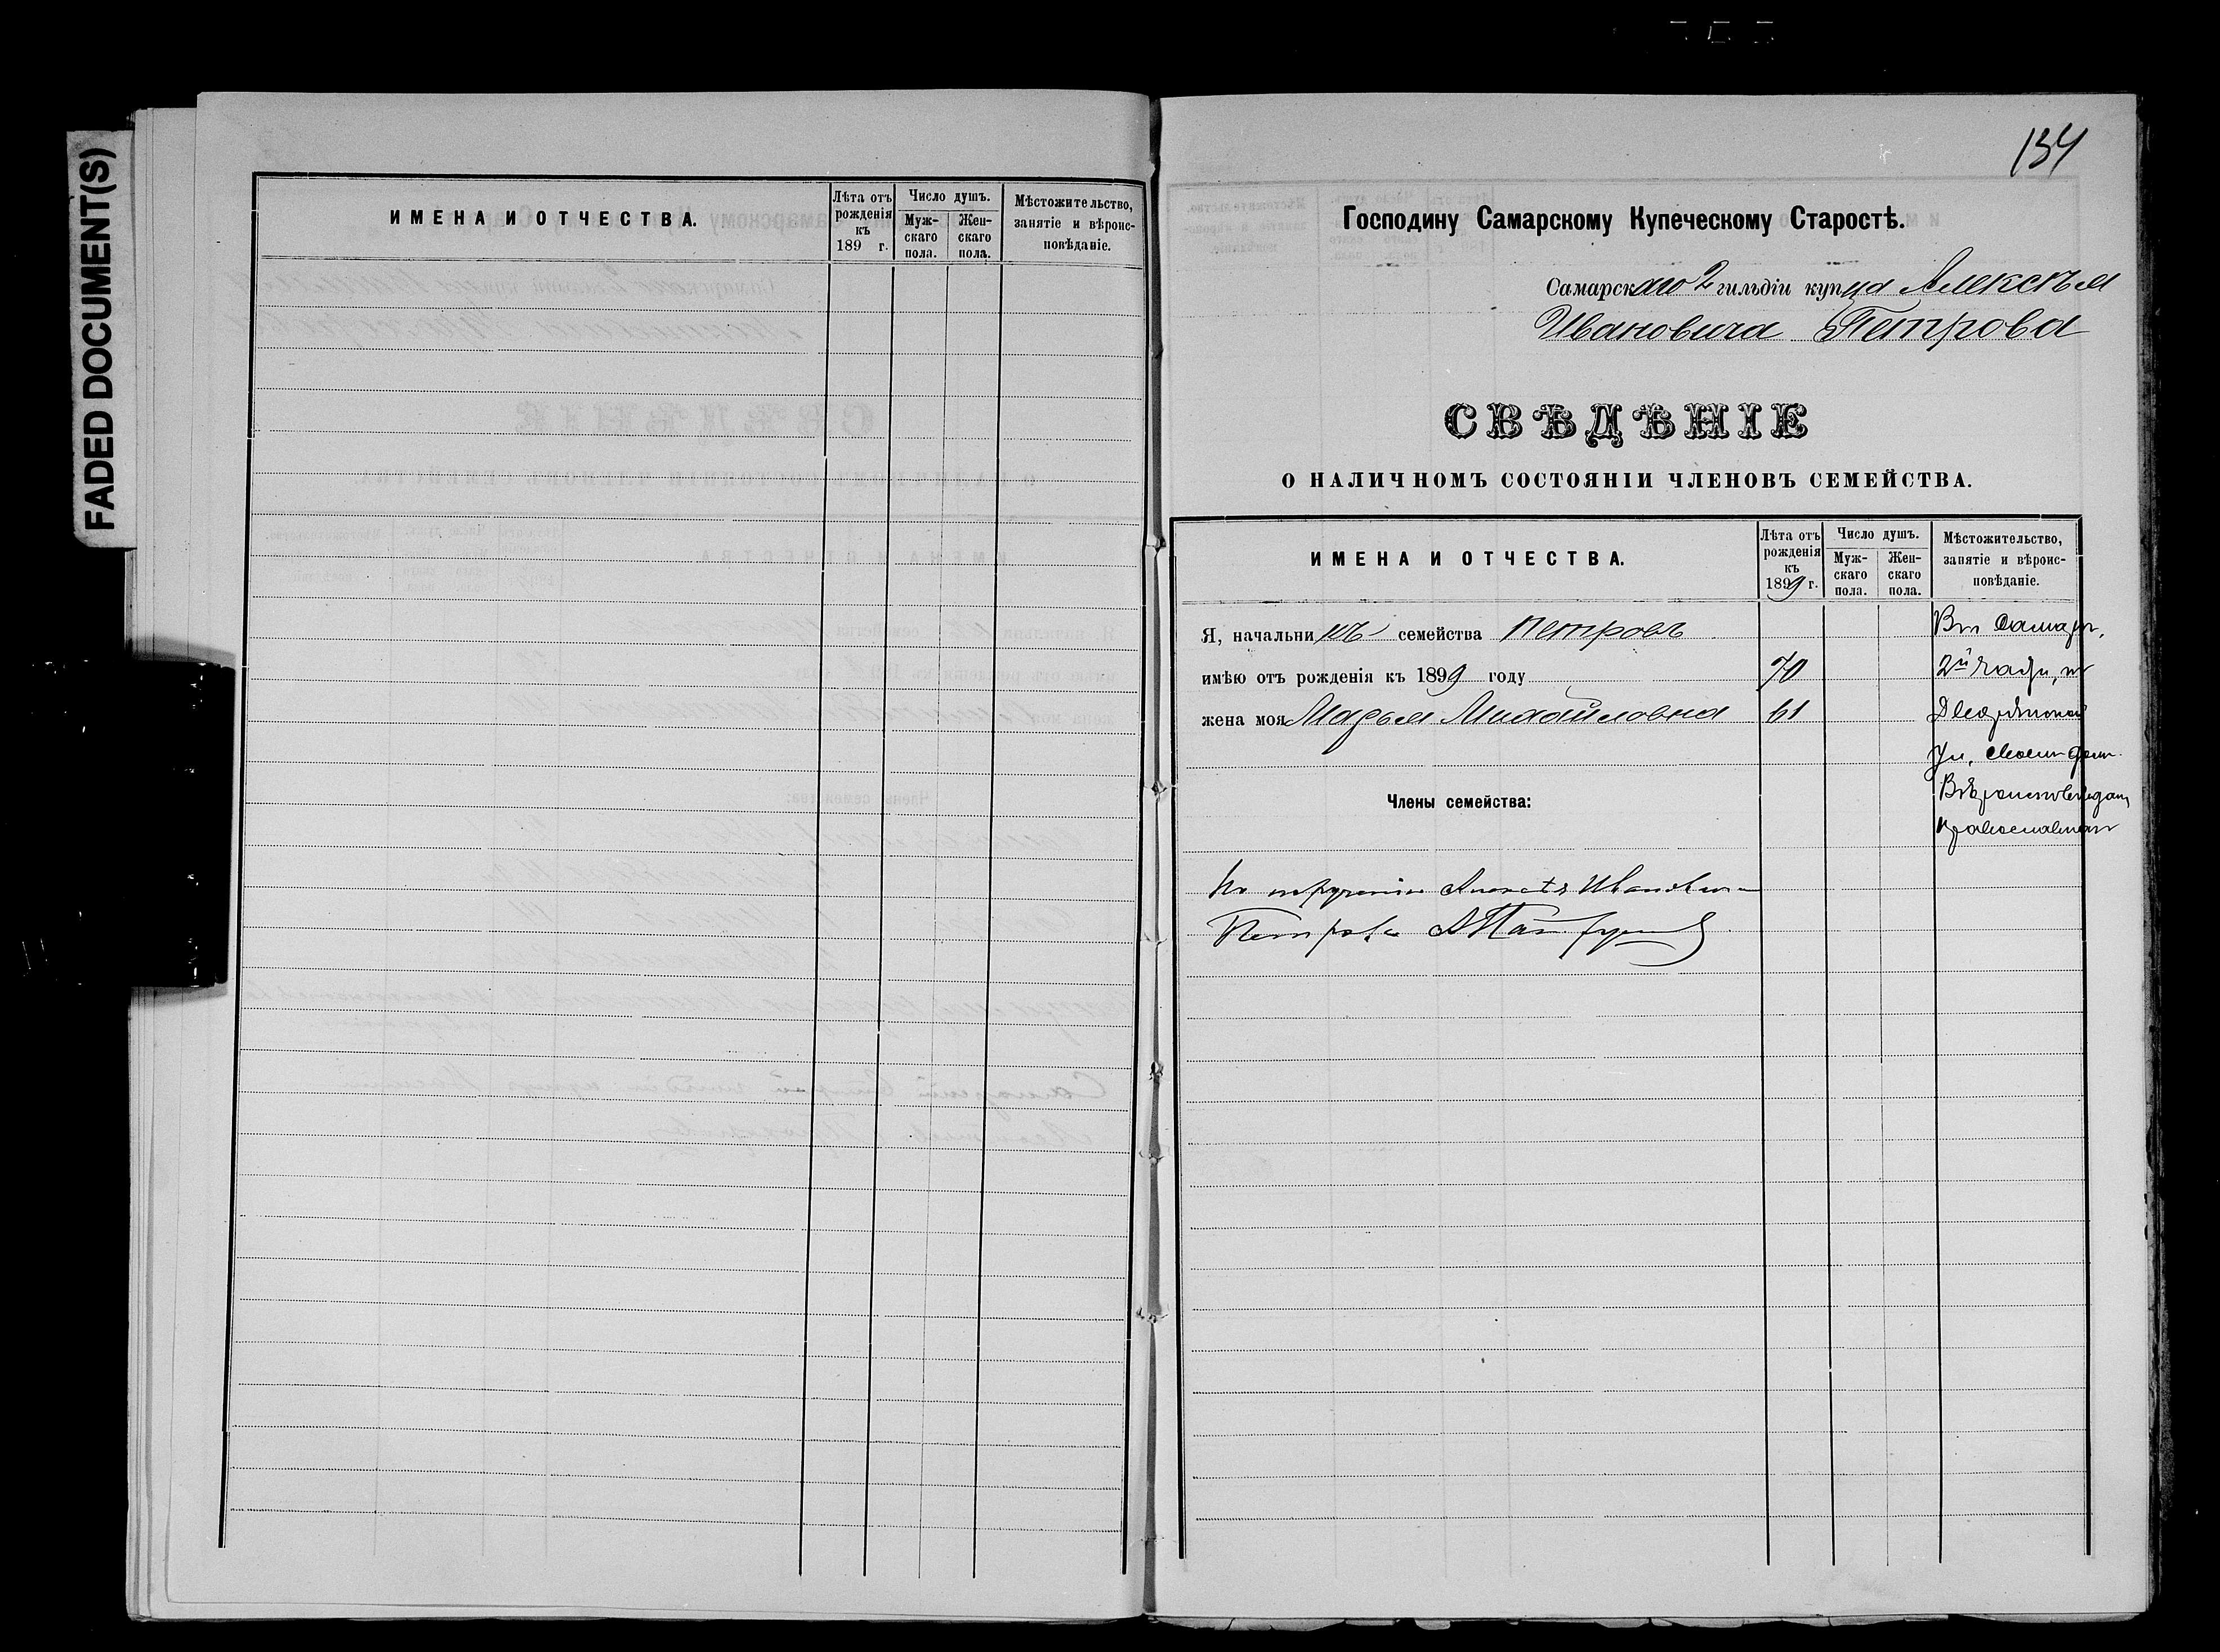 FADED DOCUMENT(S)
ИМЕНА И ОТЧЕСТВА.
Лѣта отъ рожденія къ 189 г.
Число душъ.
Муж-скаго пола.
Жен-скаго пола.
Мѣстожительство, занятіе и вѣроис-повѣданіе.
134
Господину Самарскому Купеческому Старостѣ.
Самарскаго 2 гильдіи купца Алексѣя
Ивановича Петрова
СВѢДѢНІЕ
О НАЛИЧНОМЪ СОСТОЯНІИ ЧЛЕНОВЪ СЕМЕЙСТВА.
ИМЕНА И ОТЧЕСТВА.
Лѣта отъ рожденія къ 1899 г.
Число душъ.
Муж-скаго пола.
Жен-скаго пола.
Мѣстожительство, занятіе и вѣроис-повѣданіе.
Я, начальникъ семейства Петровъ
имѣю отъ рожденія къ 1899 году 70
жена моя Марья Михайловна 61
Въ Самарѣ,
2й части, на
Дворянской
Ул, своемъ домѣ.
Вѣроисповѣдан,
православнаго
Члены семейства:
По порученію Алексѣя Ивановича
Петрова